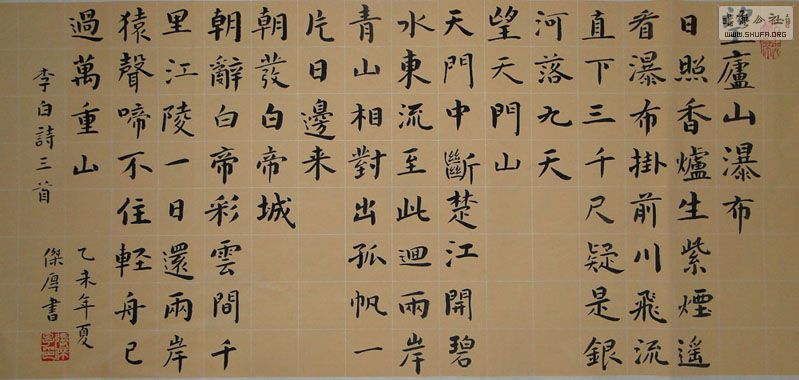 望廬山瀑布
日照香爐生紫煙遥
看瀑布掛前川飛流
直下三千尺疑是銀
河落九天
望天門山
天門中斷楚江開碧
水東流至此迴兩岸
青山相對出孤帆一
片日邊来
朝發白帝城
朝辭白帝彩雲間千
里江陵一日還兩岸
猿聲啼不住輕舟已
過萬重山
李白詩三首
乙未年夏
傑厚書
WWW.SHUFA.ORG